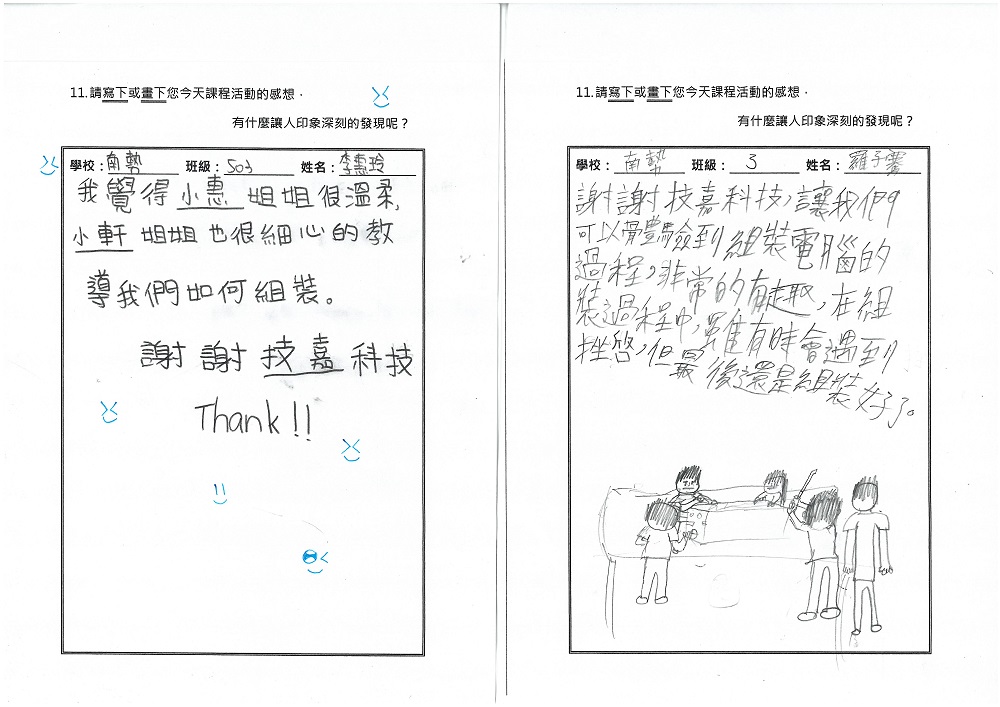 11.請寫下或畫下您今天課程活動的感想，
有什麼讓人印象深刻的發現呢？
學校：南勢 班級：503 姓名：李惠玲
我覺得小惠姐姐很溫柔,
小軒姐姐也很細心的教
導我們如何組裝。
謝謝技嘉科技
Thank!!
11.請寫下或畫下您今天課程活動的感想，
有什麼讓人印象深刻的發現呢？
學校：南勢 班級：3 姓名：羅子
謝謝技嘉科技，讓我們
可以體驗到組裝電腦的
過程，非常的有趣，在組
裝過程中，雖有時會遇到
挫
，但最後還是組裝好了。